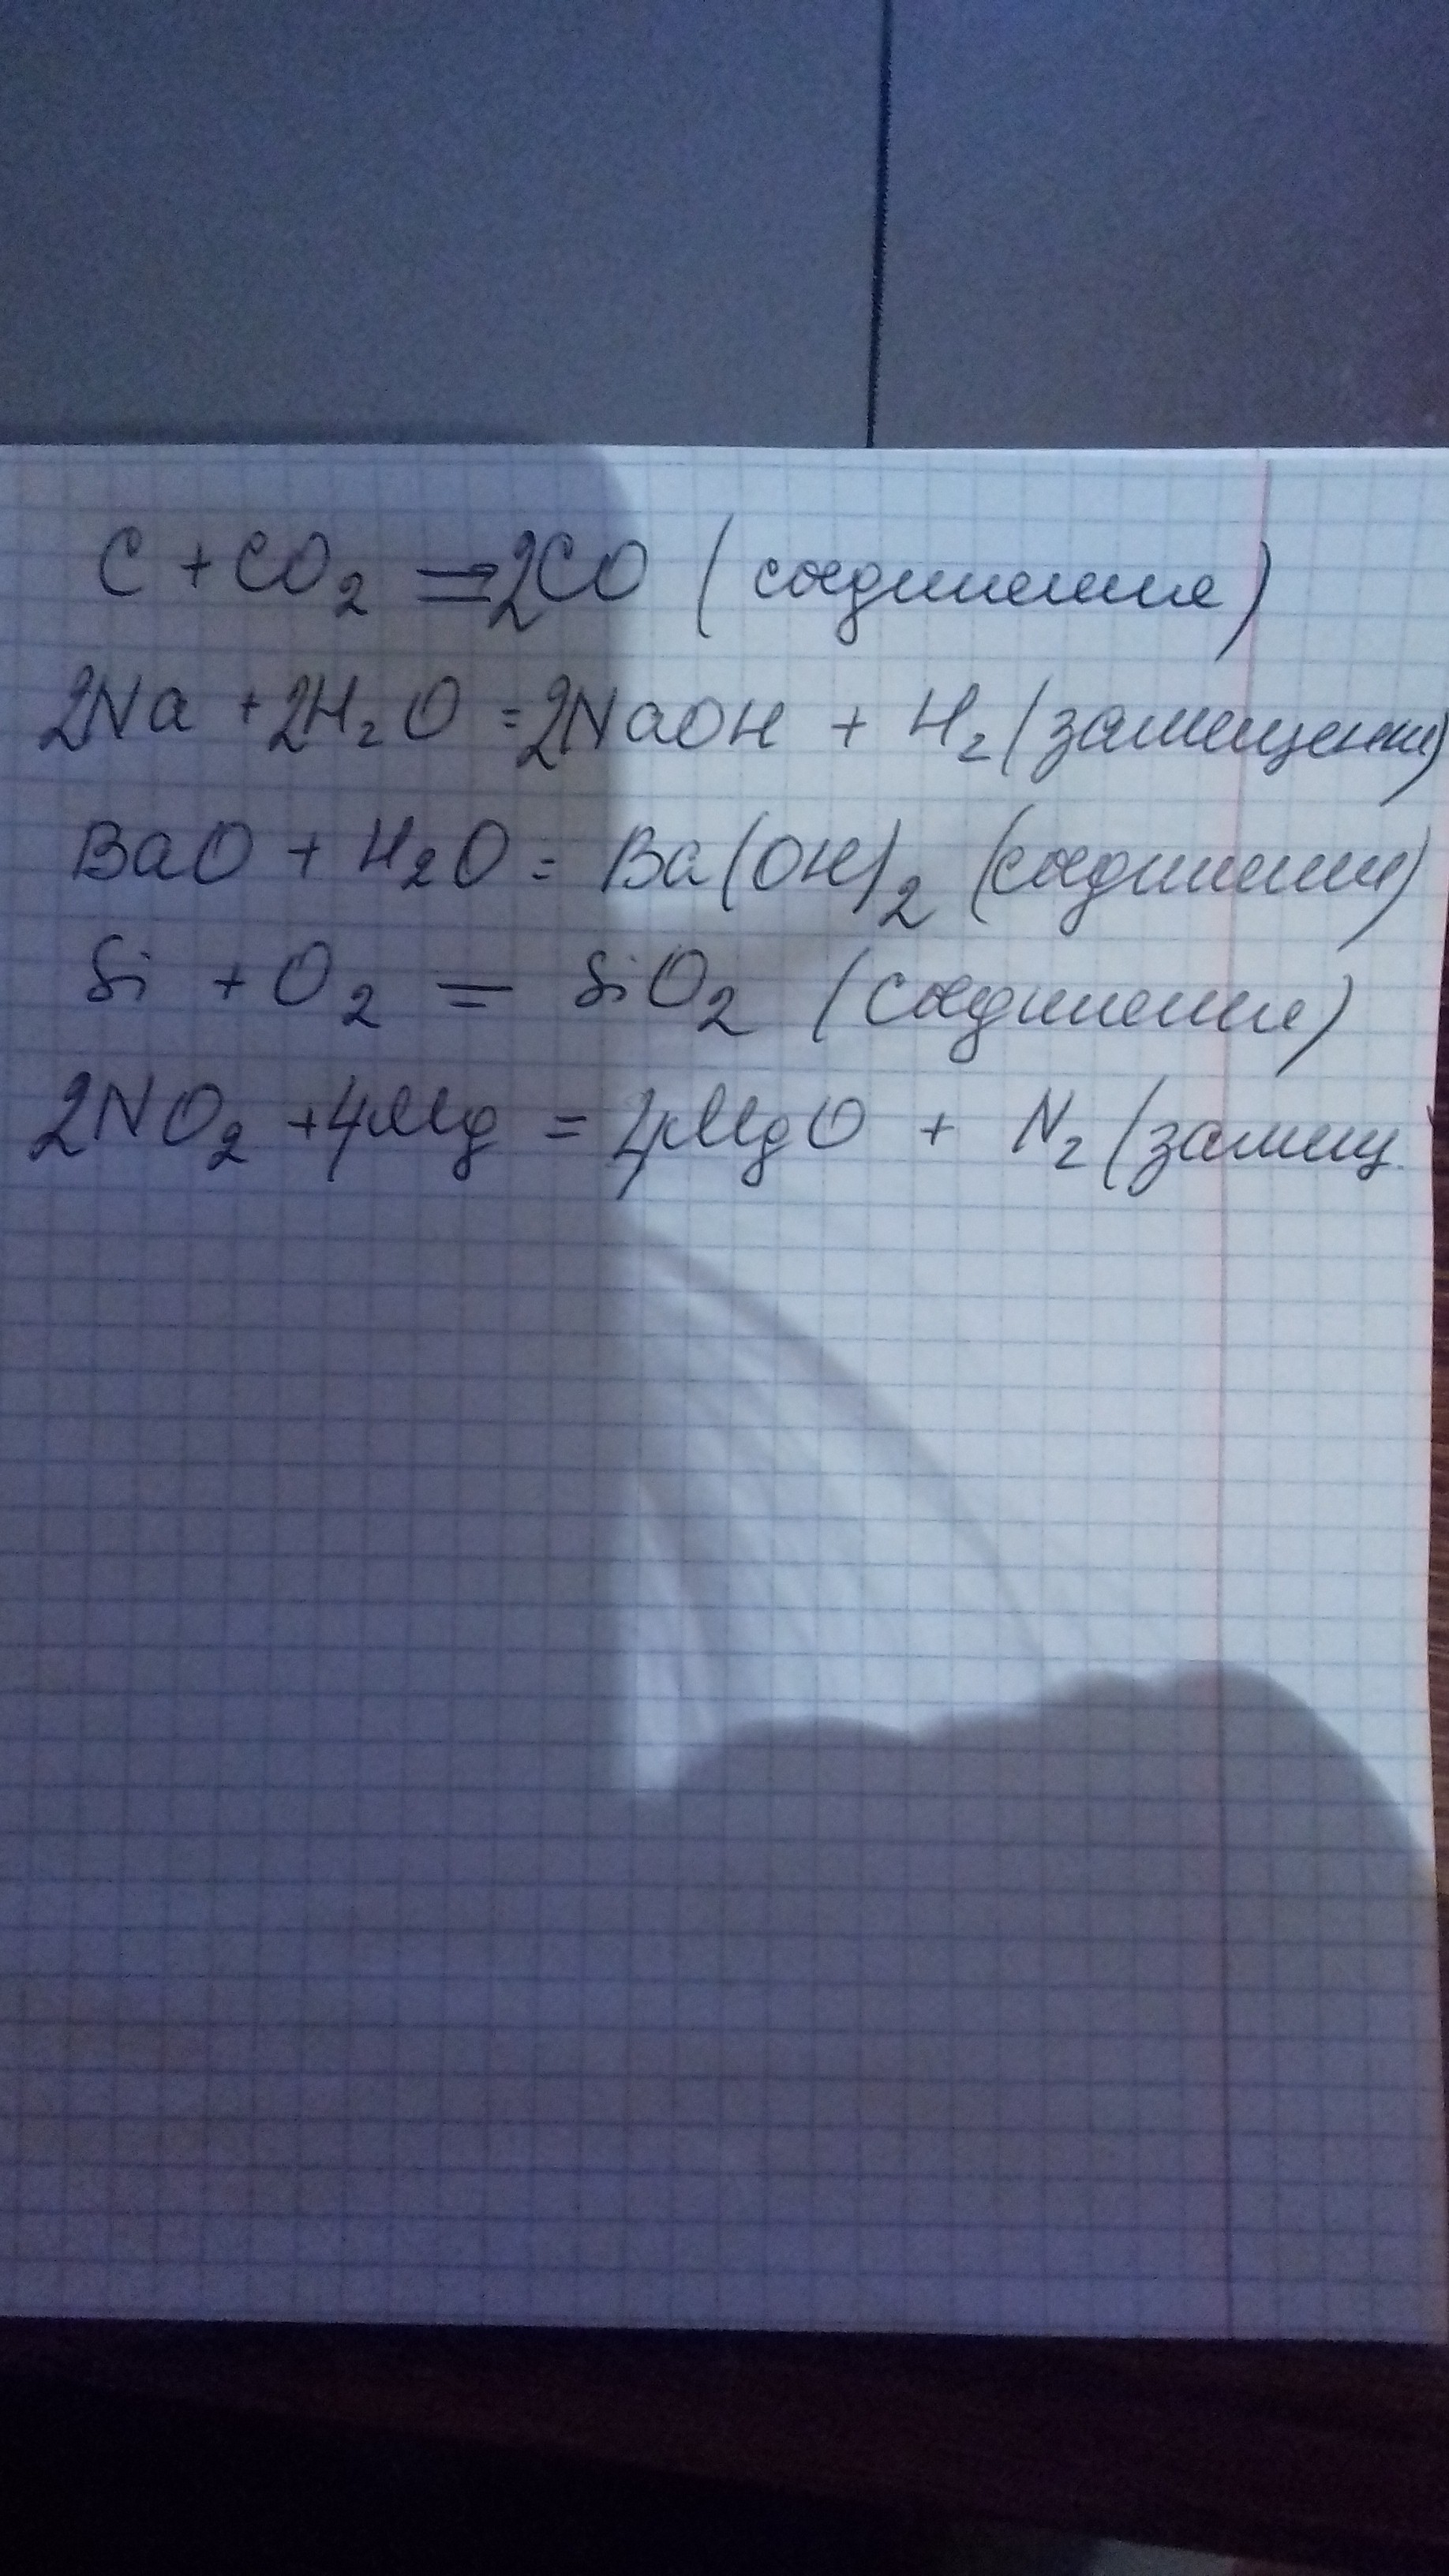 C + CO₂ = 2CO (соединение)
2Na + 2H₂O = 2NaOH + H₂ (замещение)
BaO + H₂O = Ba(OH)₂ (соединение)
Si + O₂ = SiO₂ (соединение)
2NO₂ + 4Mg = 4MgO + N₂ (замещ.